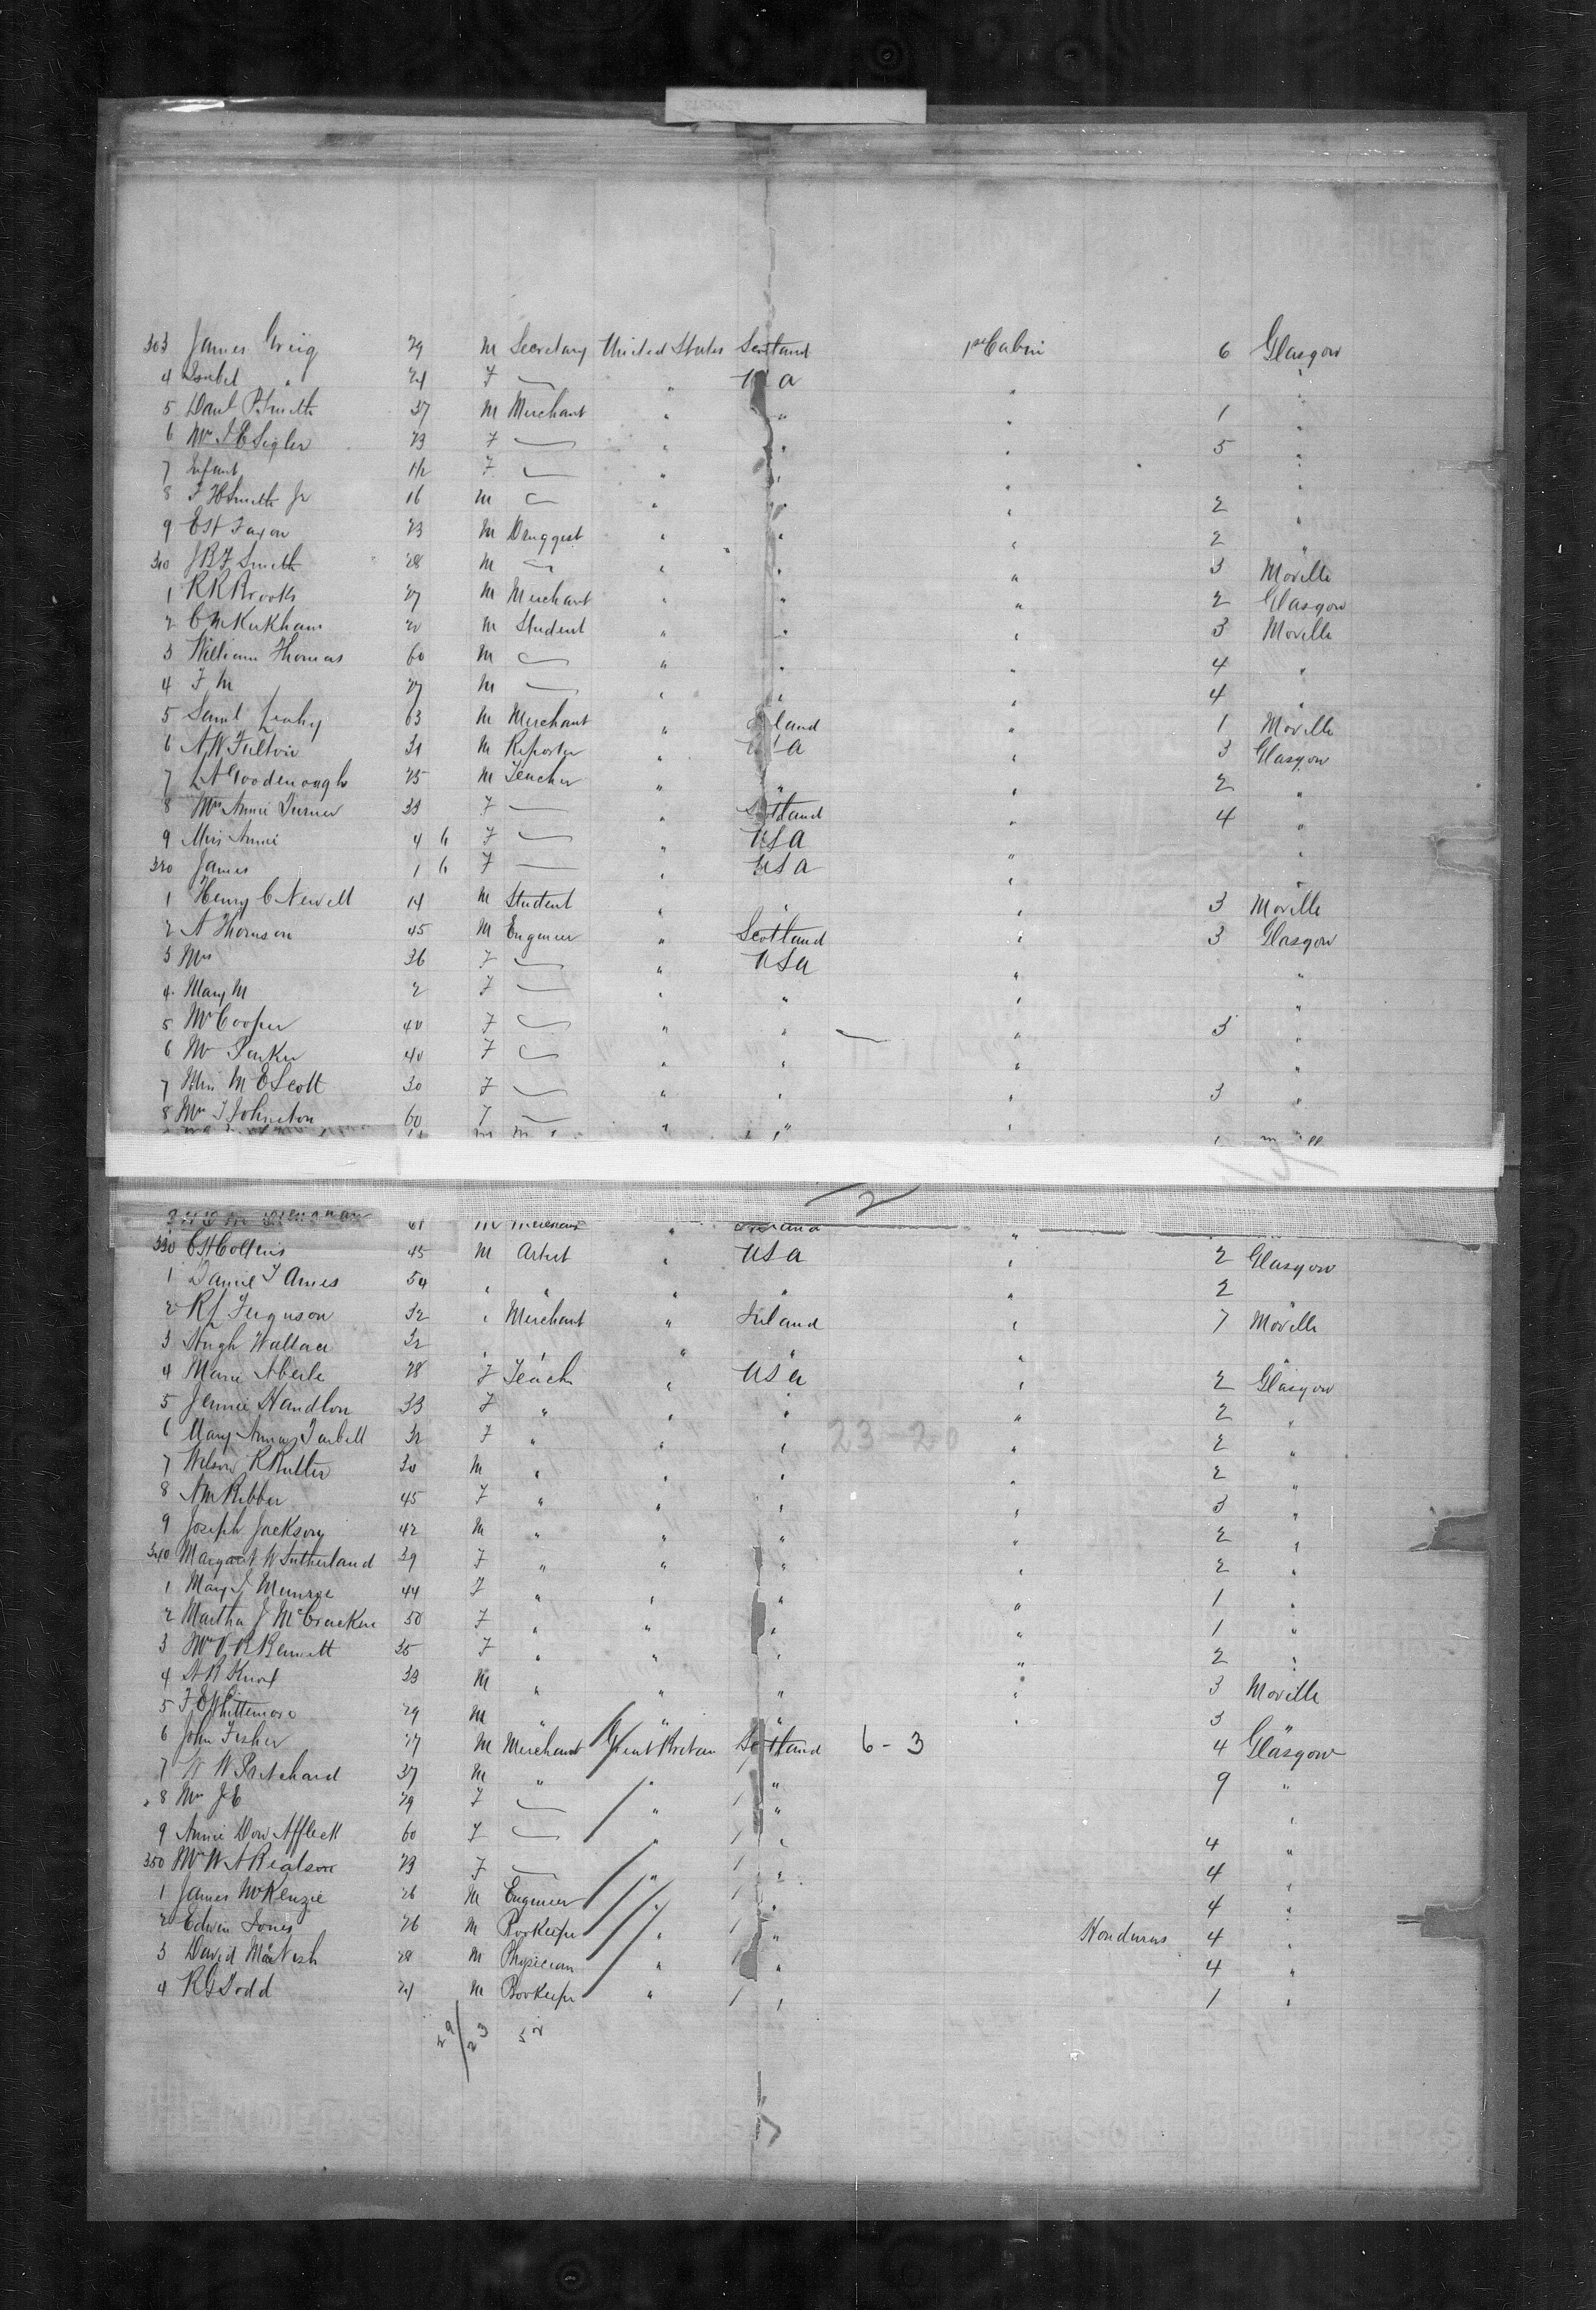 303 James Greig 29 M Secretary United States Scotland 1st Cabin 6 Glasgow
4 Isabel " 24 F — " U A " "
5 Danl P Smith 37 M Merchant " " " 1 "
6 Mrs J E Sigler 23 F — " " " 5 "
7 Infant 1½ F — " " " "
8 F H Smith Jr 16 M — " " " 2 "
9 E H Faxon 23 M Druggist " " " 2 "
310 J B F Smith 28 M — " " " 3 Moville
1 R R Brooks 27 M Merchant " " " 2 Glasgow
2 C M Kirkham 20 M Student " " " 3 Moville
3 William Thomas 60 M — " " " 4 "
4 F M 27 M — " " " 4 "
5 Saml 63 M Merchant " land " 1 Moville
6 A W Fulton 31 M Reporter " U A " 3 Glasgow
7 L A Goodenough 25 M Teacher " " " 2 "
8 Mrs Annie Turner 33 F — " Scotland " 4 "
9 Miss Annie 4 6 F — " USA " "
320 James 1 6 F — " USA " "
1 Henry C Newell 14 M Student " " " 3 Moville
2 A Thomson 45 M Engineer " Scotland " 3 Glasgow
3 Mrs 36 F — " USA " "
4 Mary M 2 F — " " " "
5 Mrs Cooper 40 F — " " — " 3 "
6 Mrs Parker 40 F — " " " "
7 Miss M E Scott 30 F — " " " 3 "
8 Mrs J Johnston 60 F — " " "
2
61 M Merchant " "
330 C H Collins 45 M Artist " USA " 2 Glasgow
1 Daniel T Ames 54 " " " " " 2 "
2 R J Ferguson 32 " Merchant " Ireland " 7 Moville
3 Hugh Wallace 32 " " " " " "
4 Marie Aberle 28 F Teach " USA " 2 Glasgow
5 Jennie Handlon 33 F " " " " 2 "
6 Mary Anna Tarbell 32 F " " " 23-20 " 2 "
7 Wilson R Butler 30 M " " " " 2 "
8 A M Ribber 45 F " " " " 3 "
9 Joseph Jackson 42 M " " " " 2 "
340 Margaret W Sutherland 39 F " " " " 2 "
1 Mary J Munroe 44 F " " " 1 "
2 Martha J McCracken 50 F " " " " 1 "
3 Mrs V R Bennett 35 F " " " " 2 "
4 A R Knox 33 M " " " " 3 Moville
5 F E Whittemore 29 M " " " " 3 "
6 John Fisher 27 M Merchant Great Britain Scotland 6 - 3 4 Glasgow
7 W W Pritchard 37 M " " " 9 "
8 Mrs J E 29 F — " " "
9 Annie Dow Affleck 60 F — " " 4 "
350 Mrs W A 23 F — " " 4 "
1 James McKenzie 26 M Engineer " " 4 "
2 Edwin Jones 26 M Bookeepr " " Honduras 4 "
3 David McNish 28 M Physician " " 4 "
4 R G Dodd 21 M Bookeepr " " 1 "
29/23 52